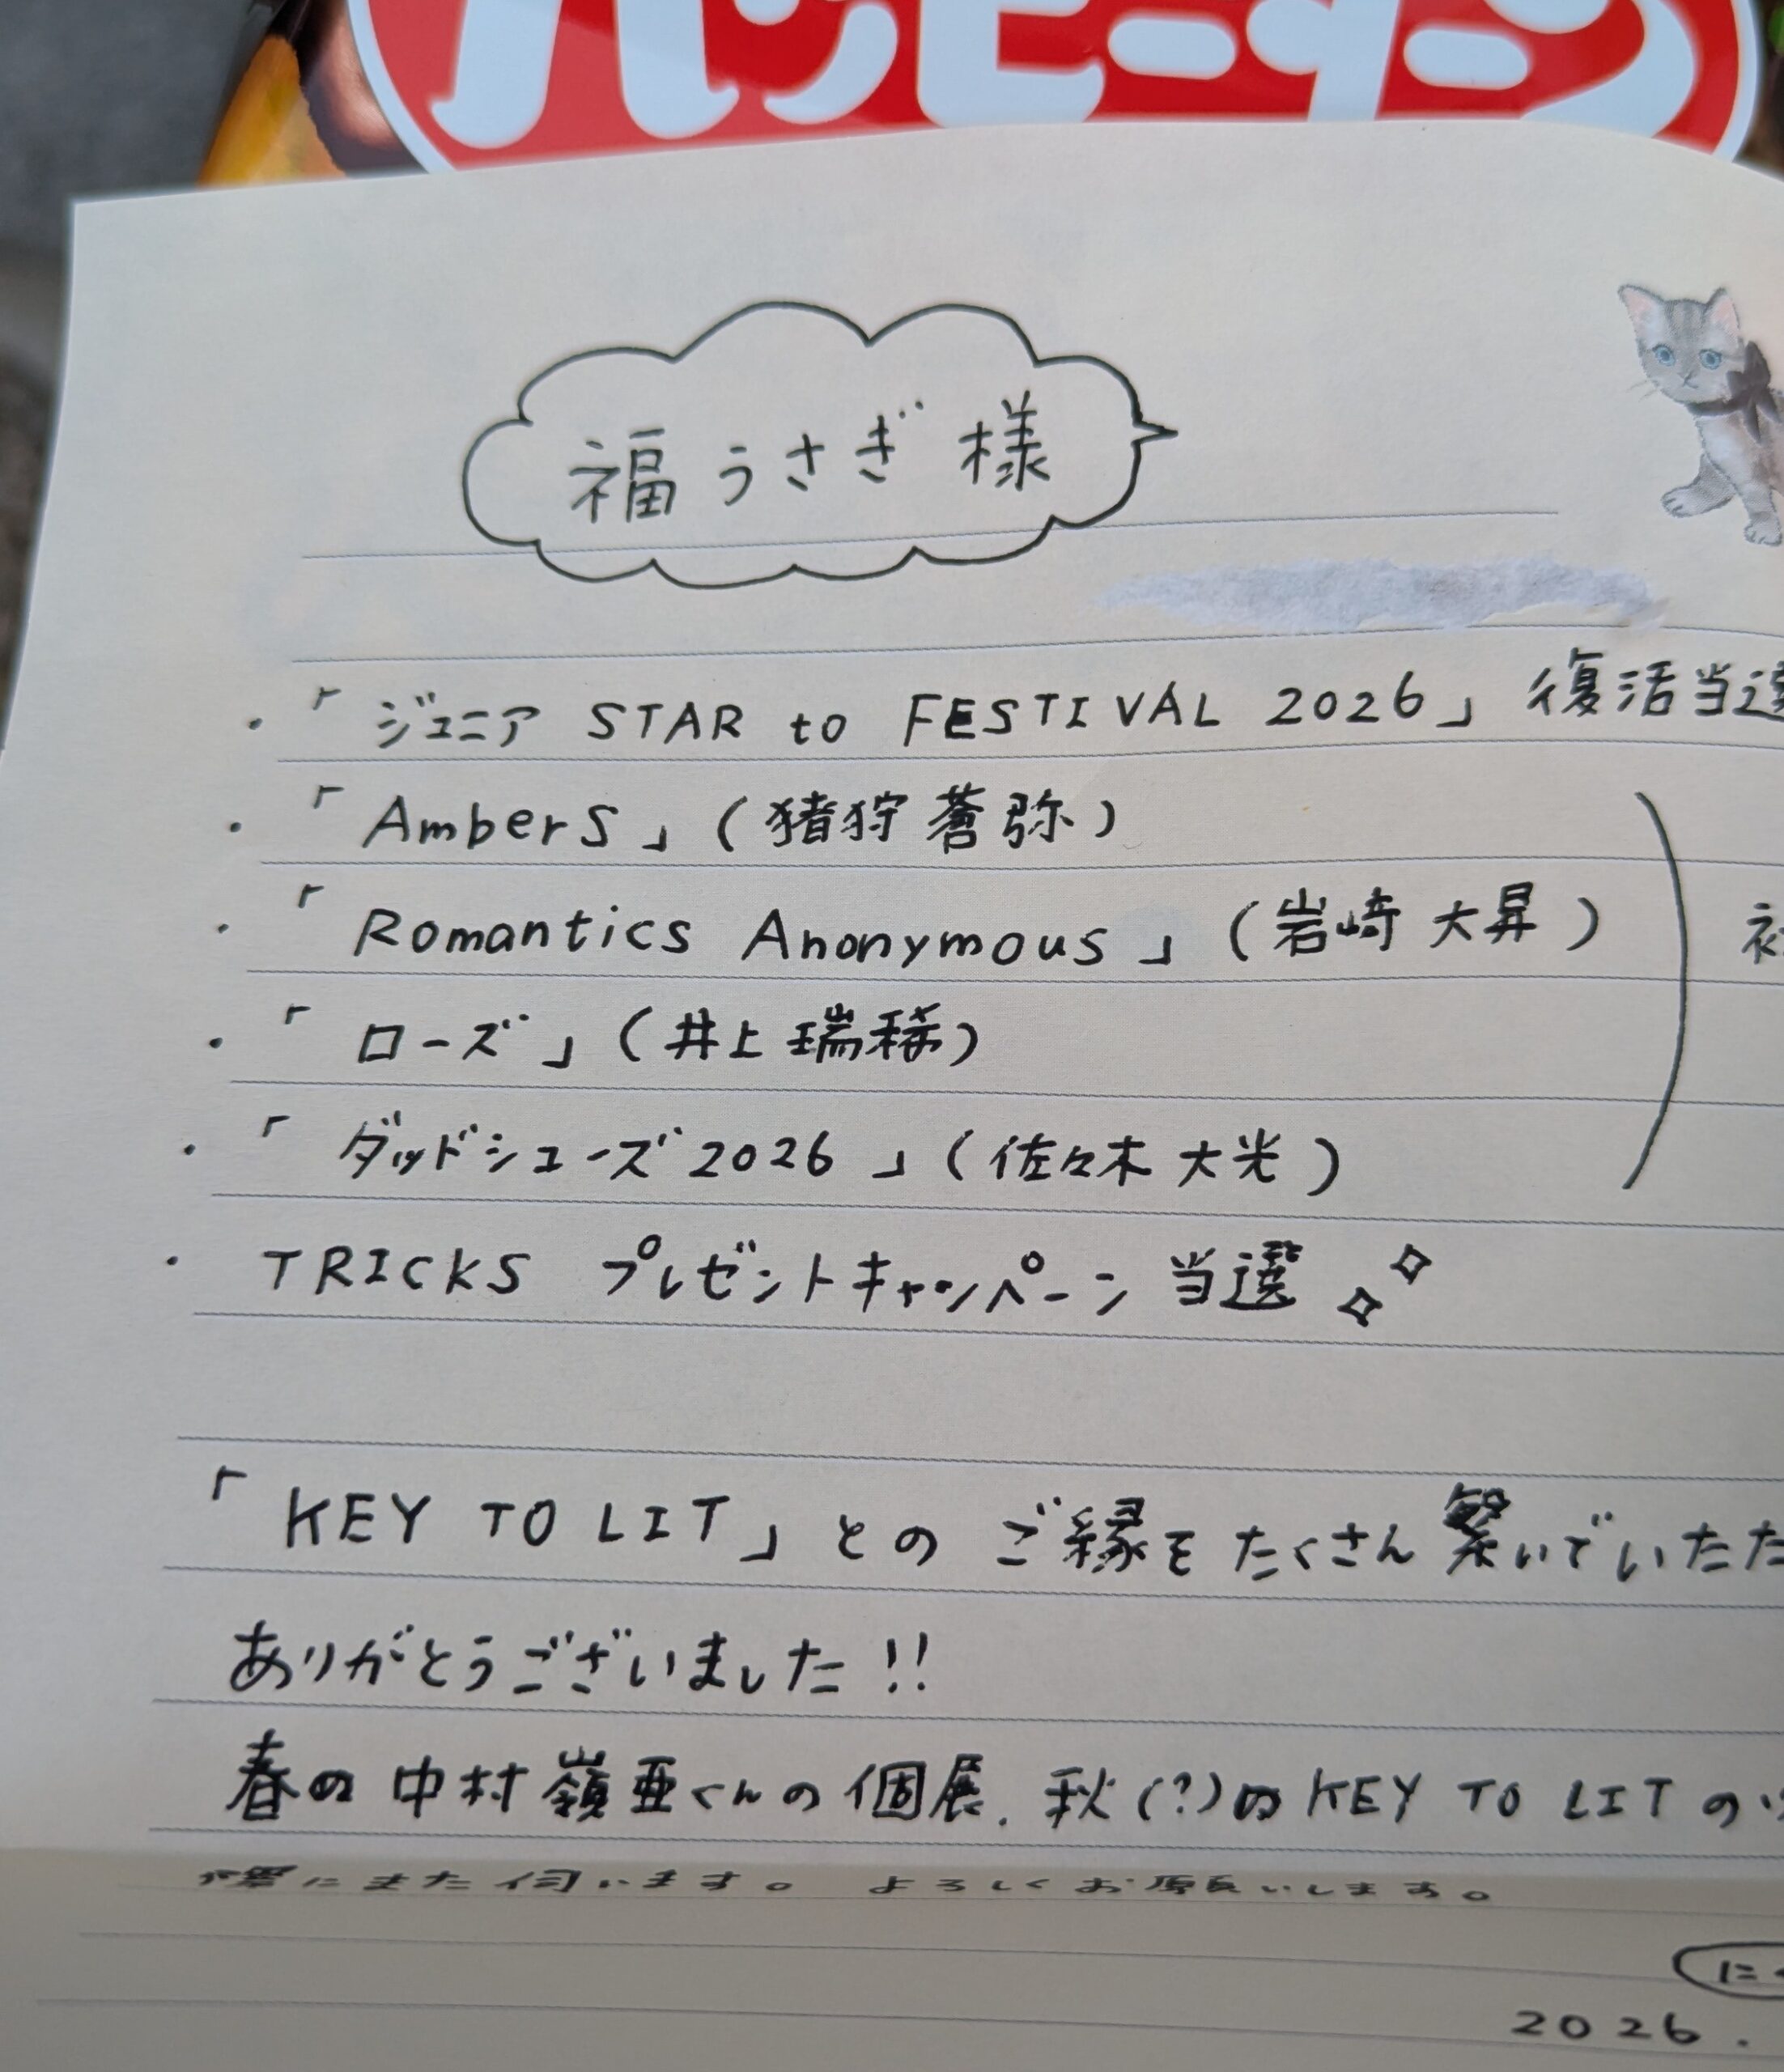 ハッピーターン
福うさぎ様
・「ジュニア STAR to FESTIVAL 2026」復活当選
・「AmberS」(猪狩蒼弥)
・「Romantics Anonymous」(岩崎大昇)
・「ローズ」(井上瑞稀)
・「ダッドシューズ2026」(佐々木大光)
・TRICKS プレゼントキャンペーン当選
「KEY TO LIT」とのご縁をたくさん繋いでいただ
ありがとうございました!!
春の中村嶺亜くんの個展、秋(?)のKEY TO LITの
際にまた伺います。よろしくお願いします。
に
2026.